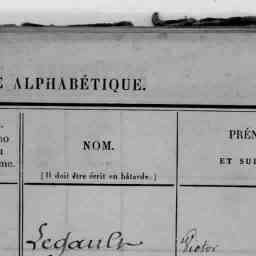 E ALPHABÉTIQUE.
NOM.
PRÉN
ET SUR
no
me.
[Il doit être écrit en bâtarde.]
Legault
Victor